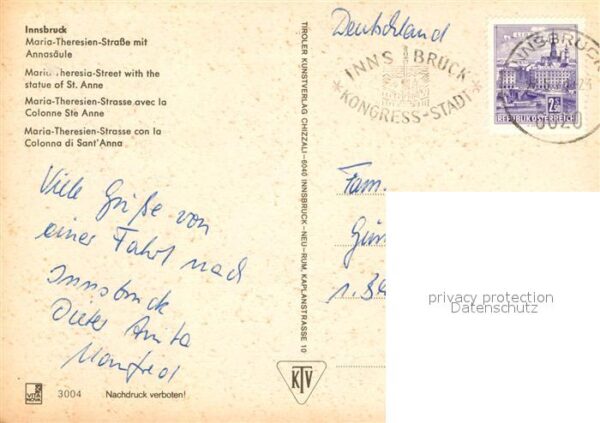 Innsbruck
Maria-Theresien-Straße mit
Annasäule
Maria-Theresia-Street with the
statue of St. Anne
Maria-Theresien-Strasse avec la
Colonne Ste Anne
Maria-Theresien-Strasse con la
Colonna di Sant'Anna
Viele Grüße von
einer Fahrt nach
Innsbruck
Dieter Anita
Manfred
VITA NOVA
3004
Nachdruck verboten!
TIROLER KUNSTVERLAG CHIZZALI–6040 INNSBRUCK–NEU-RUM, KAPLANSTRASSE 10
KTV
Deutschland
INNSBRUCK
KONGRESS-STADT
INNSBRUCK
6020
REPUBLIK ÖSTERREICH
Fam.
privacy protection
Datenschutz